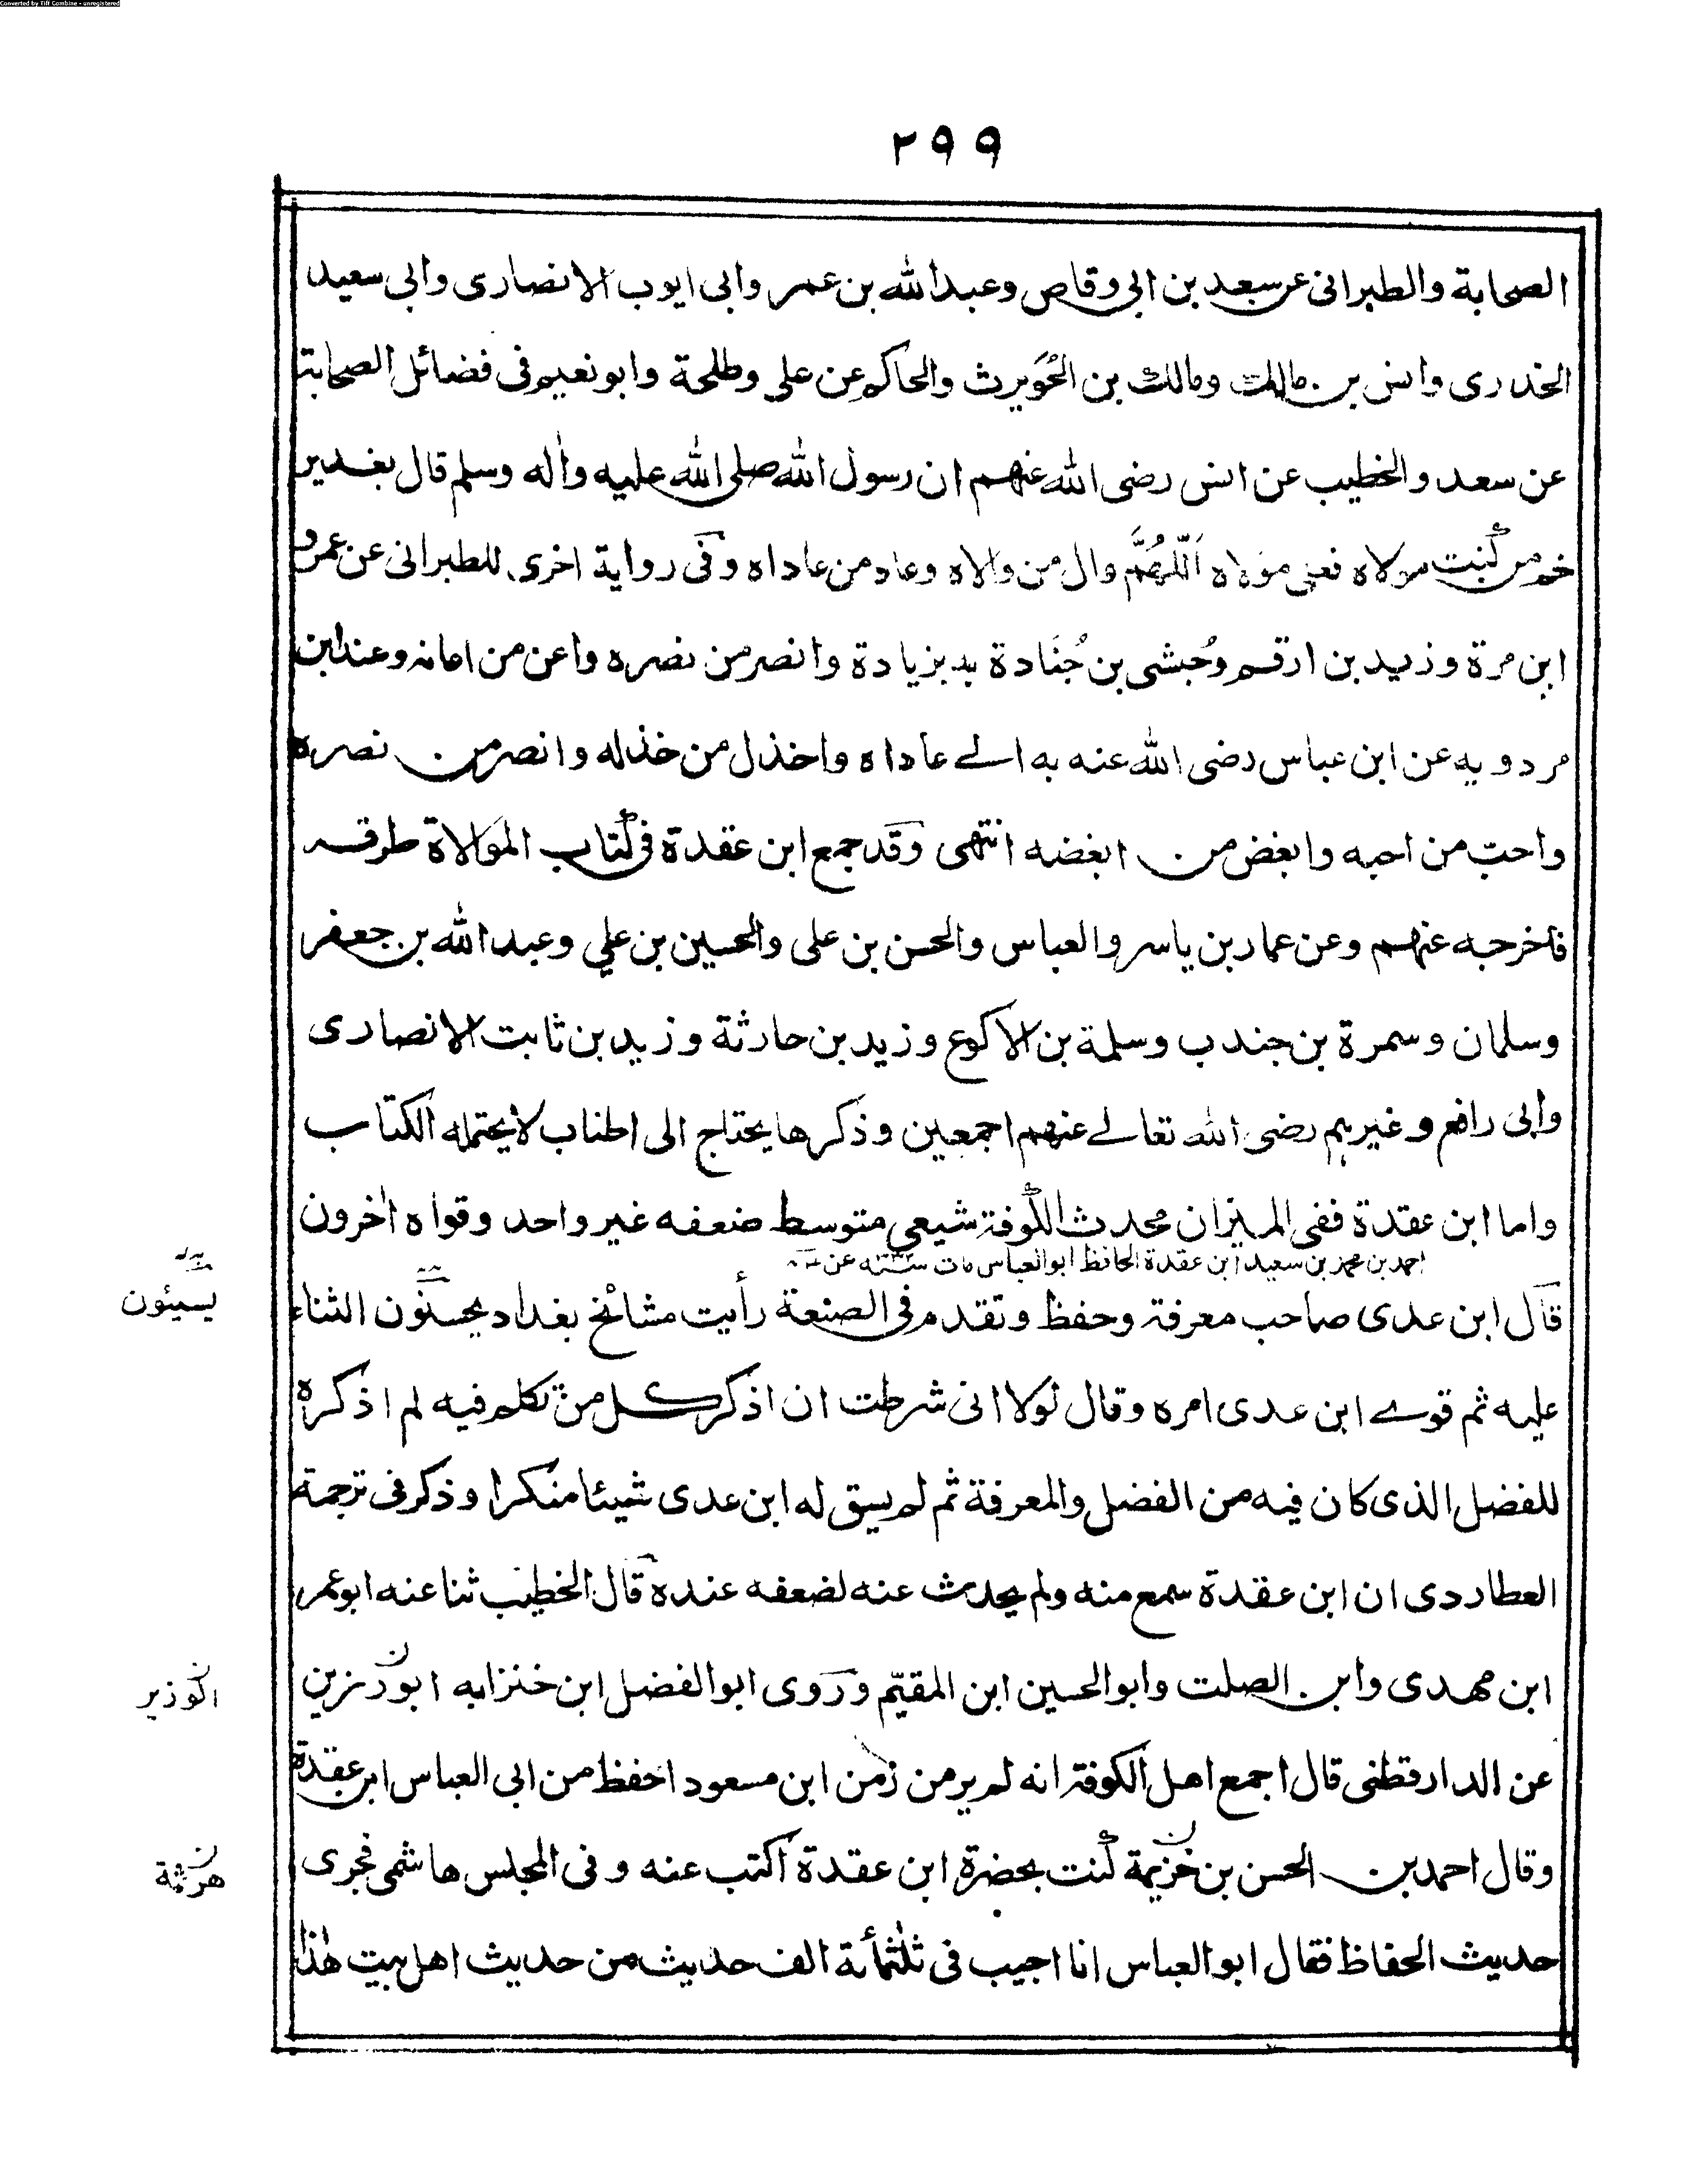 Converted by Tiff Combine - unregistered
٢٩٩
الصحابة والطبرانى عن سعد بن ابى وقاص وعبد الله بن عمر وابى ايوب الانصارى وابى سعيد
الخدرى وانس بن مالك ومالك بن الحُوَيرث والحاكم عن على وطلحة وابو نعيم فى فضائل الصحابة
عن سعد والخطيب عن انس رضى الله عنهم ان رسول الله صلى الله عليه واٰله وسلم قال بغدير
خم من كنت مولاه فعلى مولاه اَللّٰهُمَّ وال من والاه وعاد من عاداه وفى رواية اخرى للطبرانى عن عمرو
ابن مرة وزيد بن ارقم وحُبشى بن جُنَادة به بزيادة وانصر من نصره واعن من اعانه وعند ابن
مردويه عن ابن عباس رضى الله عنه به الے عاداه واخذل من خذله وانصر من نصره
واحبّ من احبه وابغض من ابغضه انتهى وقد جمع ابن عقدة فى كتاب الموالاة طرقه
فاخرجه عنهم وعن عمار بن ياسر والعباس والحسن بن على والحسين بن علي وعبد الله بن جعفر
وسلمان وسمرة بن جندب وسلمة بن الاكوع وزيد بن حارثة وزيد بن ثابت الانصارى
وابى رافع وغيرهم رضى الله تعالے عنهم اجمعين وذكرها يحتاج الى اطناب لا يحتمله الكتاب
واما ابن عقدة ففى الميزان محدث الكوفة شيعى متوسط ضعفه غير واحد وقواه اٰخرون
احمد بن محمد بن سعيد ابن عقدة الحافظ ابو العباس مات سنة عن
قال ابن عدى صاحب معرفة وحفظ وتقدم فى الصنعة رأيت مشائخ بغداد يحسنون الثناء
يسيئون
عليه ثم قوے ابن عدى امره وقال لولا انى شرطت ان اذكر كل من تكلم فيه لم اذكره
للفضل الذى كان فيه من الفضل والمعرفة ثم لم يسق له ابن عدى شيئا منكرا وذكر فى ترجمة
العطاردى ان ابن عقدة سمع منه ولم يحدث عنه لضعفه عنده قال الخطيب ثنا عنه ابو عمر
ابن مهدى وابن الصلت وابو الحسين ابن المقيّم وروى ابو الفضل ابن خنزابه ابو
الوزير
عن الدارقطنى قال اجمع اهل الكوفة انه لم ير من زمن ابن مسعود احفظ من ابى العباس ابن عقدة
وقال احمد بن الحسن بن خزيمة كنت بحضرة ابن عقدة اكتب عنه وفى المجلس هاشمى فجرى
هرثمة
حديث الحفاظ فقال ابو العباس انا اجيب فى ثلٰثمأئة الف حديث من حديث اهل بيت هٰذا